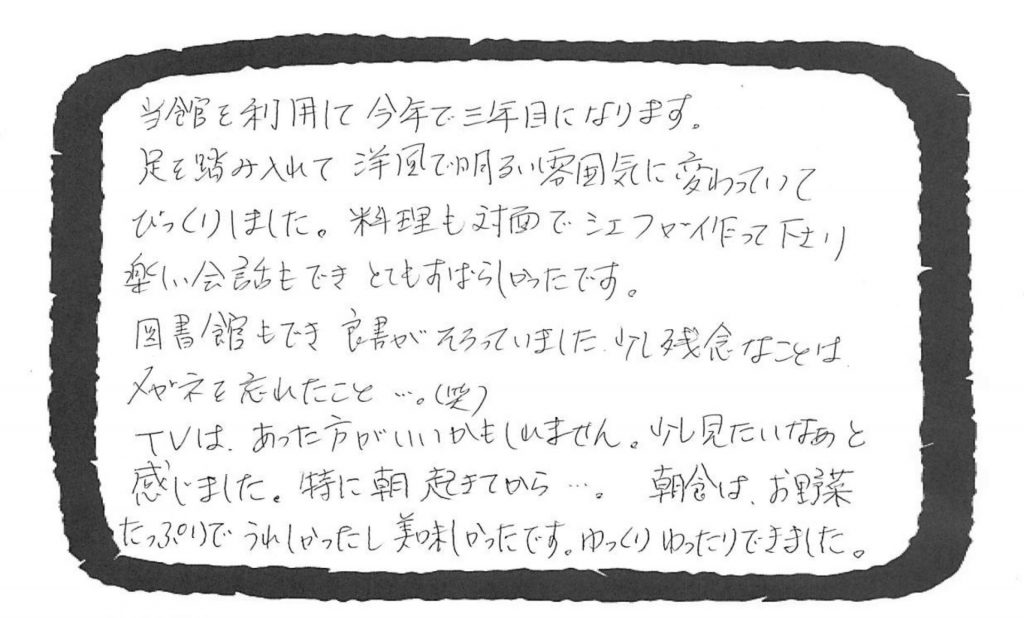 当館を利用して今年で三年目になります。
足を踏み入れて洋風で明るい雰囲気に変わっていて
びっくりしました。料理も対面でシェフが作って下さり
楽しい会話もできとてもすばらしかったです。
図書館もでき良書がそろっていました、少し残念なことは、
メガネを忘れたこと…。(笑)
TVは、あった方がいいかもしれません。少し見たいなぁと
感じました。特に朝起きてから…。朝食は、お野菜
たっぷりでうれしかったし美味しかったです。ゆっくりゆったりできました。